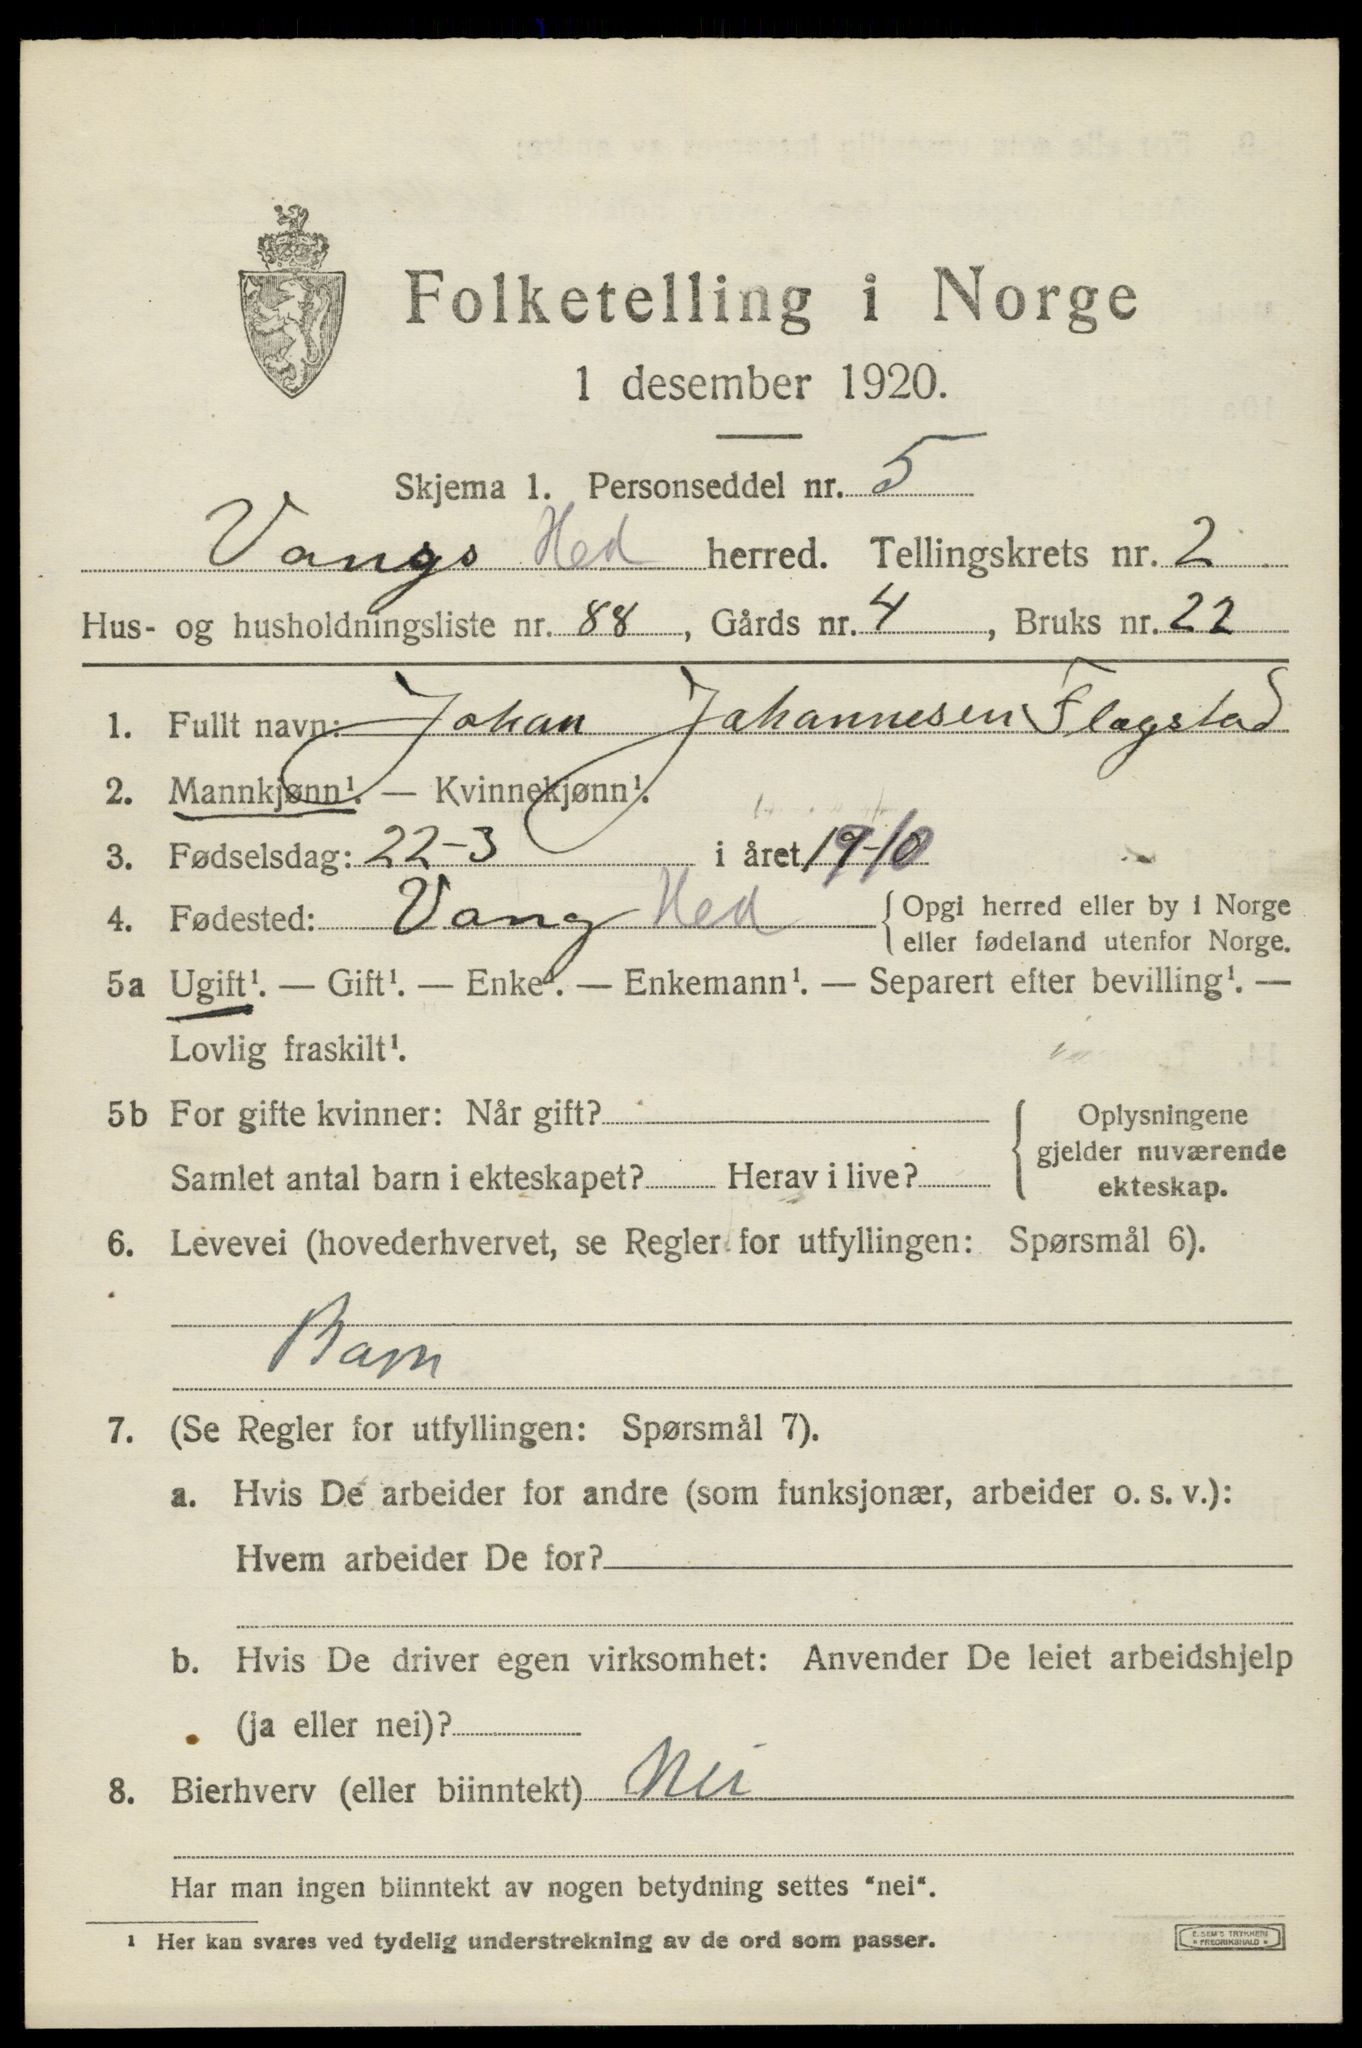 Folketelling i Norge
1 desember 1920.
Skjema 1. Personseddel nr. 5
Vangs Hed herred. Tellingskrets nr. 2
Hus- og husholdningsliste nr. 88, Gårds nr. 4, Bruks nr. 22
1. Fullt navn: Johan Johannesen Flagstad
2. Mannkjønn¹. — Kvinnekjønn¹.
3. Fødselsdag: 22-3 i året 1910
4. Fødested: Vang Hed {Opgi herred eller by i Norge
eller fødeland utenfor Norge.
5a Ugift¹. — Gift¹. — Enke¹. — Enkemann¹. — Separert efter bevilling¹. —
Lovlig fraskilt¹.
5b For gifte kvinner: Når gift? { Oplysningene
gjelder nuværende
Samlet antal barn i ekteskapet? Herav i live? ekteskap.
6. Levevei (hovederhvervet, se Regler for utfyllingen: Spørsmål 6).
Barn
7. (Se Regler for utfyllingen: Spørsmål 7).
a. Hvis De arbeider for andre (som funksjonær, arbeider o. s. v.):
Hvem arbeider De for?
b. Hvis De driver egen virksomhet: Anvender De leiet arbeidshjelp
(ja eller nei)?
8. Bierhverv (eller biinntekt) Nei
Har man ingen biinntekt av nogen betydning settes "nei".
¹ Her kan svares ved tydelig understrekning av de ord som passer.
E. SEM'S TRYKKERI
FREDRIKSHALD